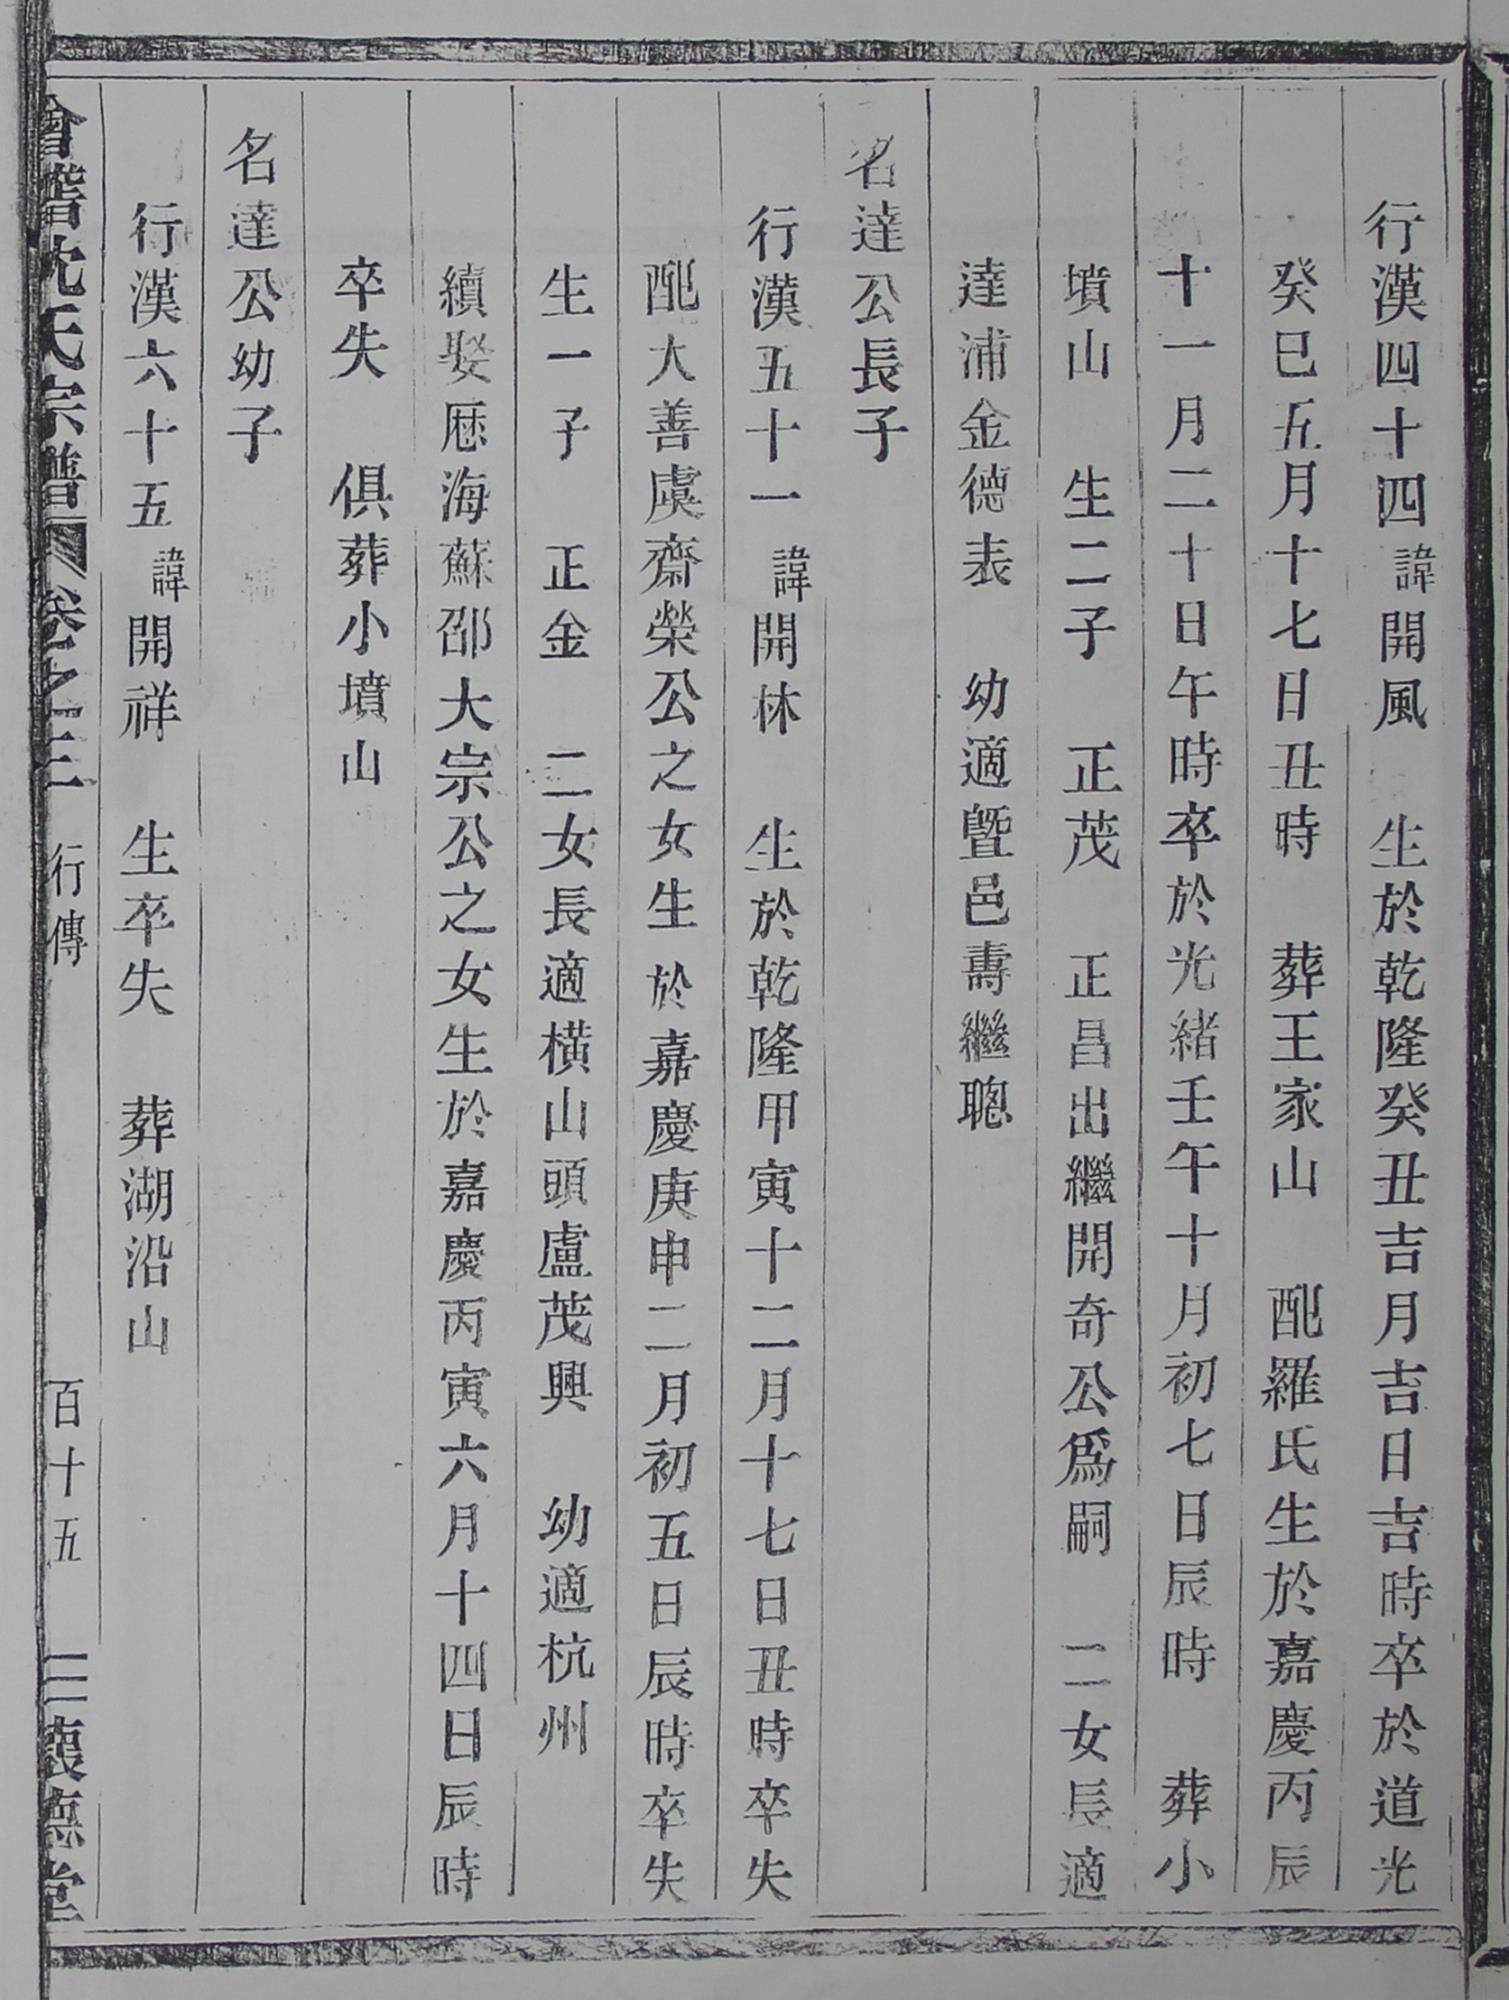 行漢四十四諱開風　生於乾隆癸丑吉月吉日吉時卒於道光
癸巳五月十七日丑時　葬王家山　配羅氏生於嘉慶丙辰
十一月二十日午時卒於光緒壬午十月初七日辰時　葬小
墳山　生二子　正茂　正昌出繼開奇公爲嗣　二女長適
達浦金德表　幼適暨邑壽繼聰
名達公長子
行漢五十一諱開林　生於乾隆甲寅十二月十七日丑時卒失
配大善虞齋榮公之女生於嘉慶庚申二月初五日辰時卒失
生一子　正金　二女長適橫山頭盧茂興　幼適杭州
續娶厯海蘇邵大宗公之女生於嘉慶丙寅六月十四日辰時
卒失　俱葬小墳山
名達公幼子
行漢六十五諱開祥　生卒失　葬湖沿山
會稽沈氏宗譜　卷之三　行傳　百十五　三懷德堂